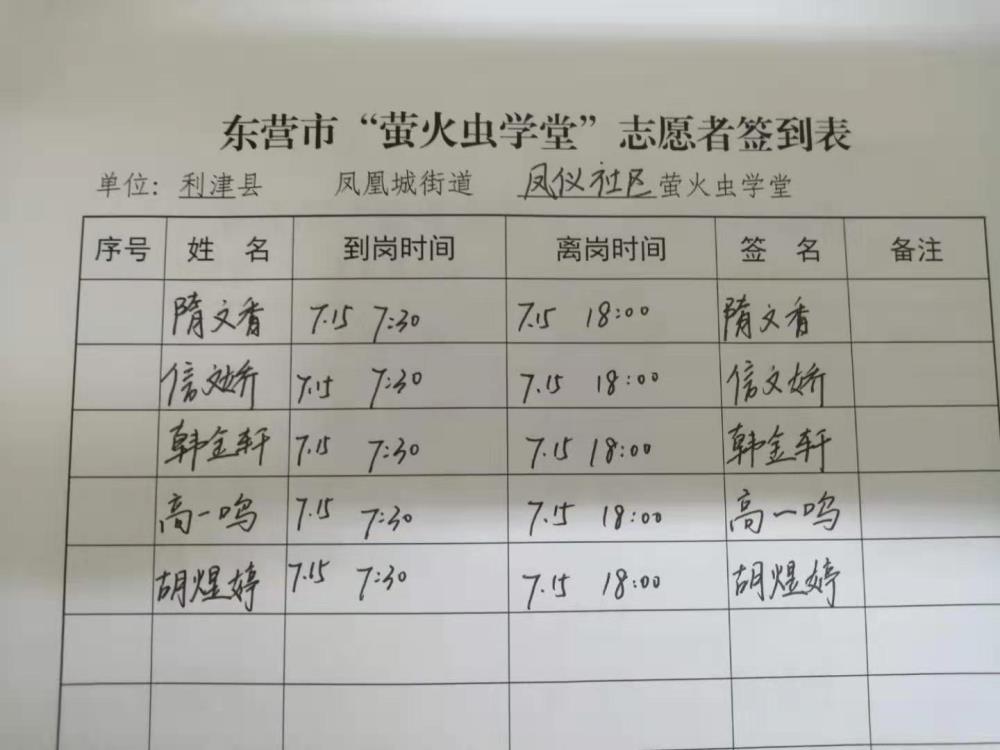 东营市“萤火虫学堂”志愿者签到表
单位：利津县 凤凰城街道 凤仪社区萤火虫学堂
序号 姓 名 到岗时间 离岗时间 签 名 备注
隋文香 7.15 7:30 7.15 18:00 隋文香
信文娇 7.15 7:30 7.15 18:00 信文娇
韩金轩 7.15 7:30 7.15 18:00 韩金轩
高一鸣 7.15 7:30 7.15 18:00 高一鸣
胡煜婷 7.15 7:30 7.15 18:00 胡煜婷